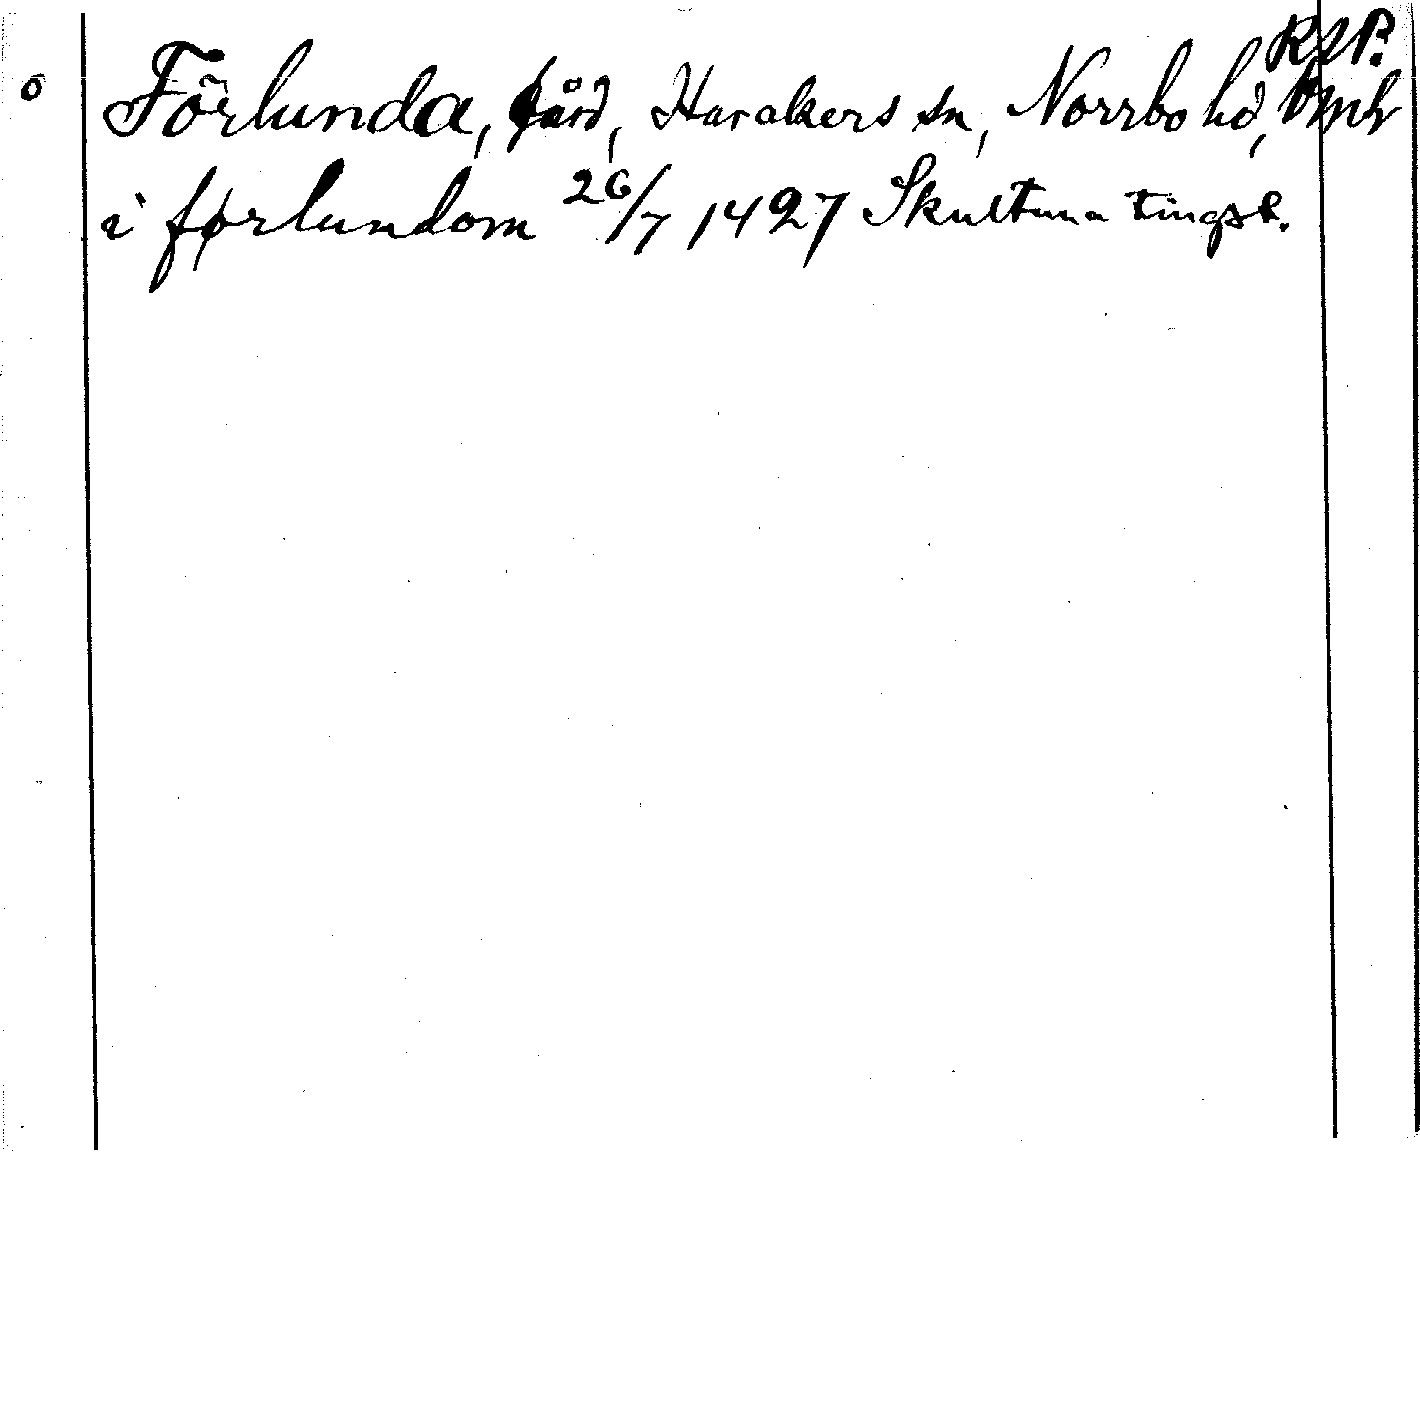 RAP.
o Förlunda, gård, Harakers sn, Norrbo hd, Vmh
i førlundom 26/7 1427 Skultuna tingst.